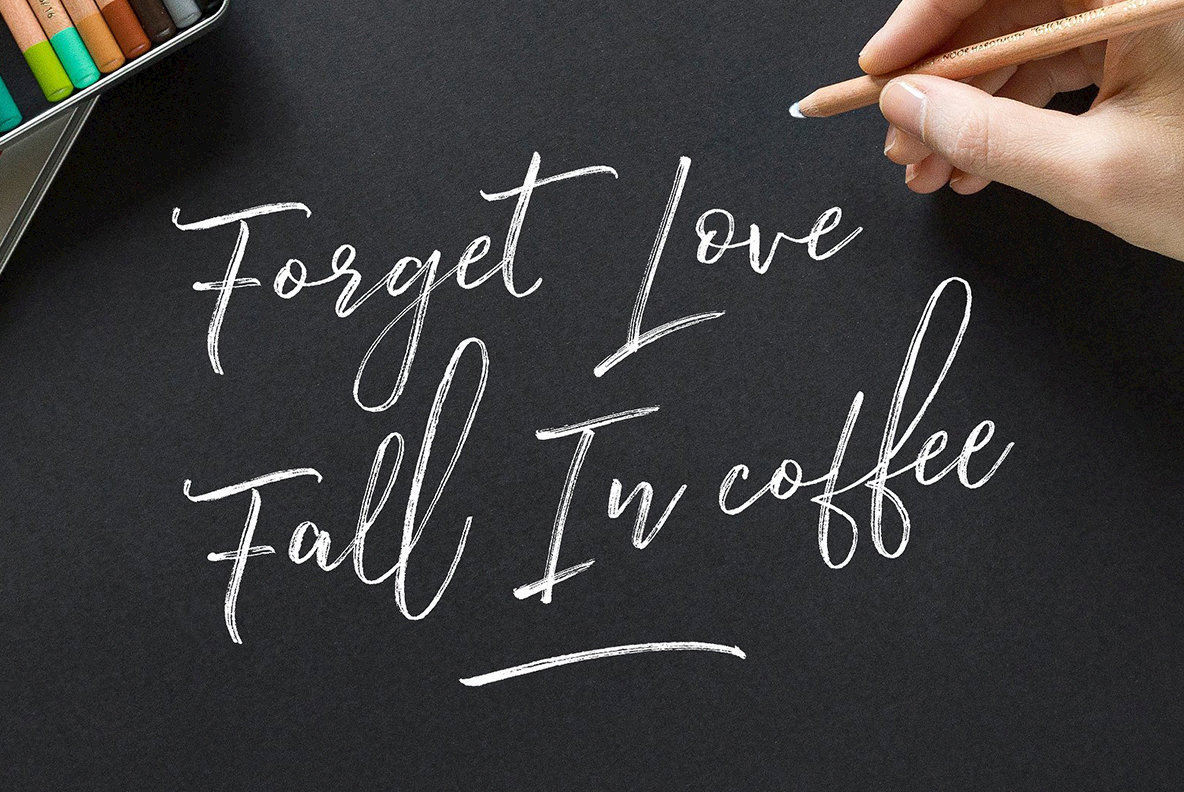 Forget Love
Fall In coffee